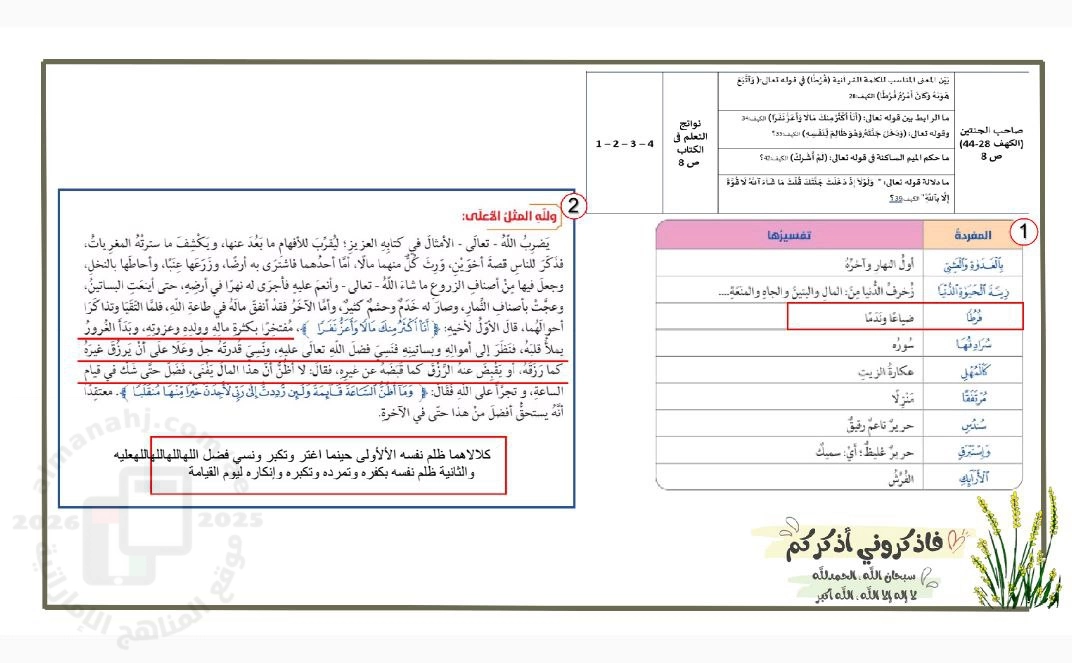 صاحب الجنتين
(الكهف 28-44)
ص 8
بيّن المعنى المناسب للكلمة القرآنية (فُرُطًا) في قوله تعالى:( وَٱتَّبَعَ
هَوَىٰهُ وَكَانَ أَمْرُهُۥ فُرُطًا) الكهف:28
ما الرابط بين قوله تعالى: (أَنَا۠ أَكْثَرُ مِنكَ مَالًا وَأَعَزُّ نَفَرًا) الكهف:34
وقوله تعالى: (وَدَخَلَ جَنَّتَهُۥ وَهُوَ ظَالِمٌ لِّنَفْسِهِۦ) الكهف:35؟
ما حكم الميم الساكنة في قوله تعالى: (لَمْ أُشْرِكْ) الكهف:42؟
ما دلالة قوله تعالى: " وَلَوْلَآ إِذْ دَخَلْتَ جَنَّتَكَ قُلْتَ مَا شَآءَ ٱللَّهُ لَا قُوَّةَ
إِلَّا بِٱللَّهِ" الكهف:39؟
نواتج
التعلم في
الكتاب
ص 8
1 – 2 – 3 – 4
1
المفردة تفسيرُها
بِٱلْغَدَوٰةِ وَٱلْعَشِىِّ أولُ النهار وآخرُهُ
زِينَةَ ٱلْحَيَوٰةِ ٱلدُّنْيَا زُخرفُ الدُّنيا مِنَ: المال والبنينَ والجاهِ والمنَعَةِ....
فُرُطًا ضياعًا ونَدَمًا
سُرَادِقُهَا سُورُه
كَٱلْمُهْلِ عكارةُ الزيتِ
مُرْتَفَقًا مَنْزِلًا
سُندُسٍ حريرٌ ناعمٌ رقيقٌ
وَإِسْتَبْرَقٍ حريرٌ غليظٌ؛ أيْ: سميكٌ
ٱلْأَرَآئِكِ الفُرُشُ
2
وللهِ المثَلُ الأعلَى:
يَضربُ اللهُ - تعالَى - الأمثالَ في كتابِهِ العزيزِ؛ ليُقرِّبَ للأفهامِ ما بَعُدَ عنها، ويَكْشِفَ ما سترتْهُ المغرياتُ،
فذكَرَ للناسِ قصةَ أخوَيْنِ، وَرِثَ كُلٌّ منهما مالًا، أمَّا أحدُهما فاشترَى به أرضًا، وزَرَعَها عِنَبًا، وأحاطَها بالنخلِ،
وجعلَ فيها مِنْ أصنافِ الزروعِ ما شاءَ اللهُ - تعالى - وأنعمَ عليهِ فأجرَى له نهرًا في أرضِهِ، حتى أينَعتِ البساتينُ،
وعجَّتْ بأصنافِ الثِّمارِ، وصارَ له خَدَمٌ وحشَمٌ كثيرٌ، وأمَّا الآخَرُ فقدْ أنفقَ مالَهُ في طاعةِ اللهِ، فلمَّا التقيَا وتذاكرَا
أحوالَهُما، قالَ الأوّلُ لأخيهِ: ﴿ أَنَا۠ أَكْثَرُ مِنكَ مَالًا وَأَعَزُّ نَفَرًا ﴾، مُفتخِرًا بكثرةِ مالِهِ وولدِهِ وعزوتِهِ، وبَدَأَ الغُرورُ
يملأُ قلبَهُ، فنَظَرَ إلى أموالِهِ وبساتينِهِ فنَسِيَ فضلَ اللهِ تعالَى عليهِ، ونَسِيَ قدرتَهُ جلَّ وعَلَا على أنْ يَرزُقَ غيرَهُ
كما رَزَقَهُ، أو يَقْبِضَ عنهُ الرِّزْقَ كما قَبَضَهُ عن غيرِهِ، فقالَ: لا أظنُّ أنَّ هذا المالَ يَفْنَى، فَضَلَّ حتَّى شكَّ في قيامِ
الساعةِ، و تجرَّأَ على اللهِ فَقَالَ: ﴿ وَمَآ أَظُنُّ ٱلسَّاعَةَ قَآئِمَةً وَلَئِن رُّدِدتُّ إِلَىٰ رَبِّى لَأَجِدَنَّ خَيْرًا مِّنْهَا مُنقَلَبًا ﴾. معتقِدًا
أنَّهُ يستحقُّ أفضلَ مِنْ هذا حتّى في الآخرةِ.
كلالاهما ظلم نفسه الألأولى حينما اغتر وتكبر ونسي فضل اللهاللهاللهاللهعليه
والثانية ظلم نفسه بكفره وتمرده وتكبره وإنكاره ليوم القيامة
فاذكروني أذكركم
سبحان الله ، الحمدلله
لا إله إلا الله ، الله أكبر
almanahj.com/ae
2026 2025
موقع المناهج الإماراتية